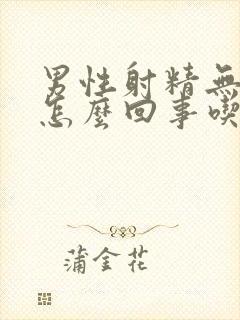 男性射精無
怎麼回事喫
蒲金花